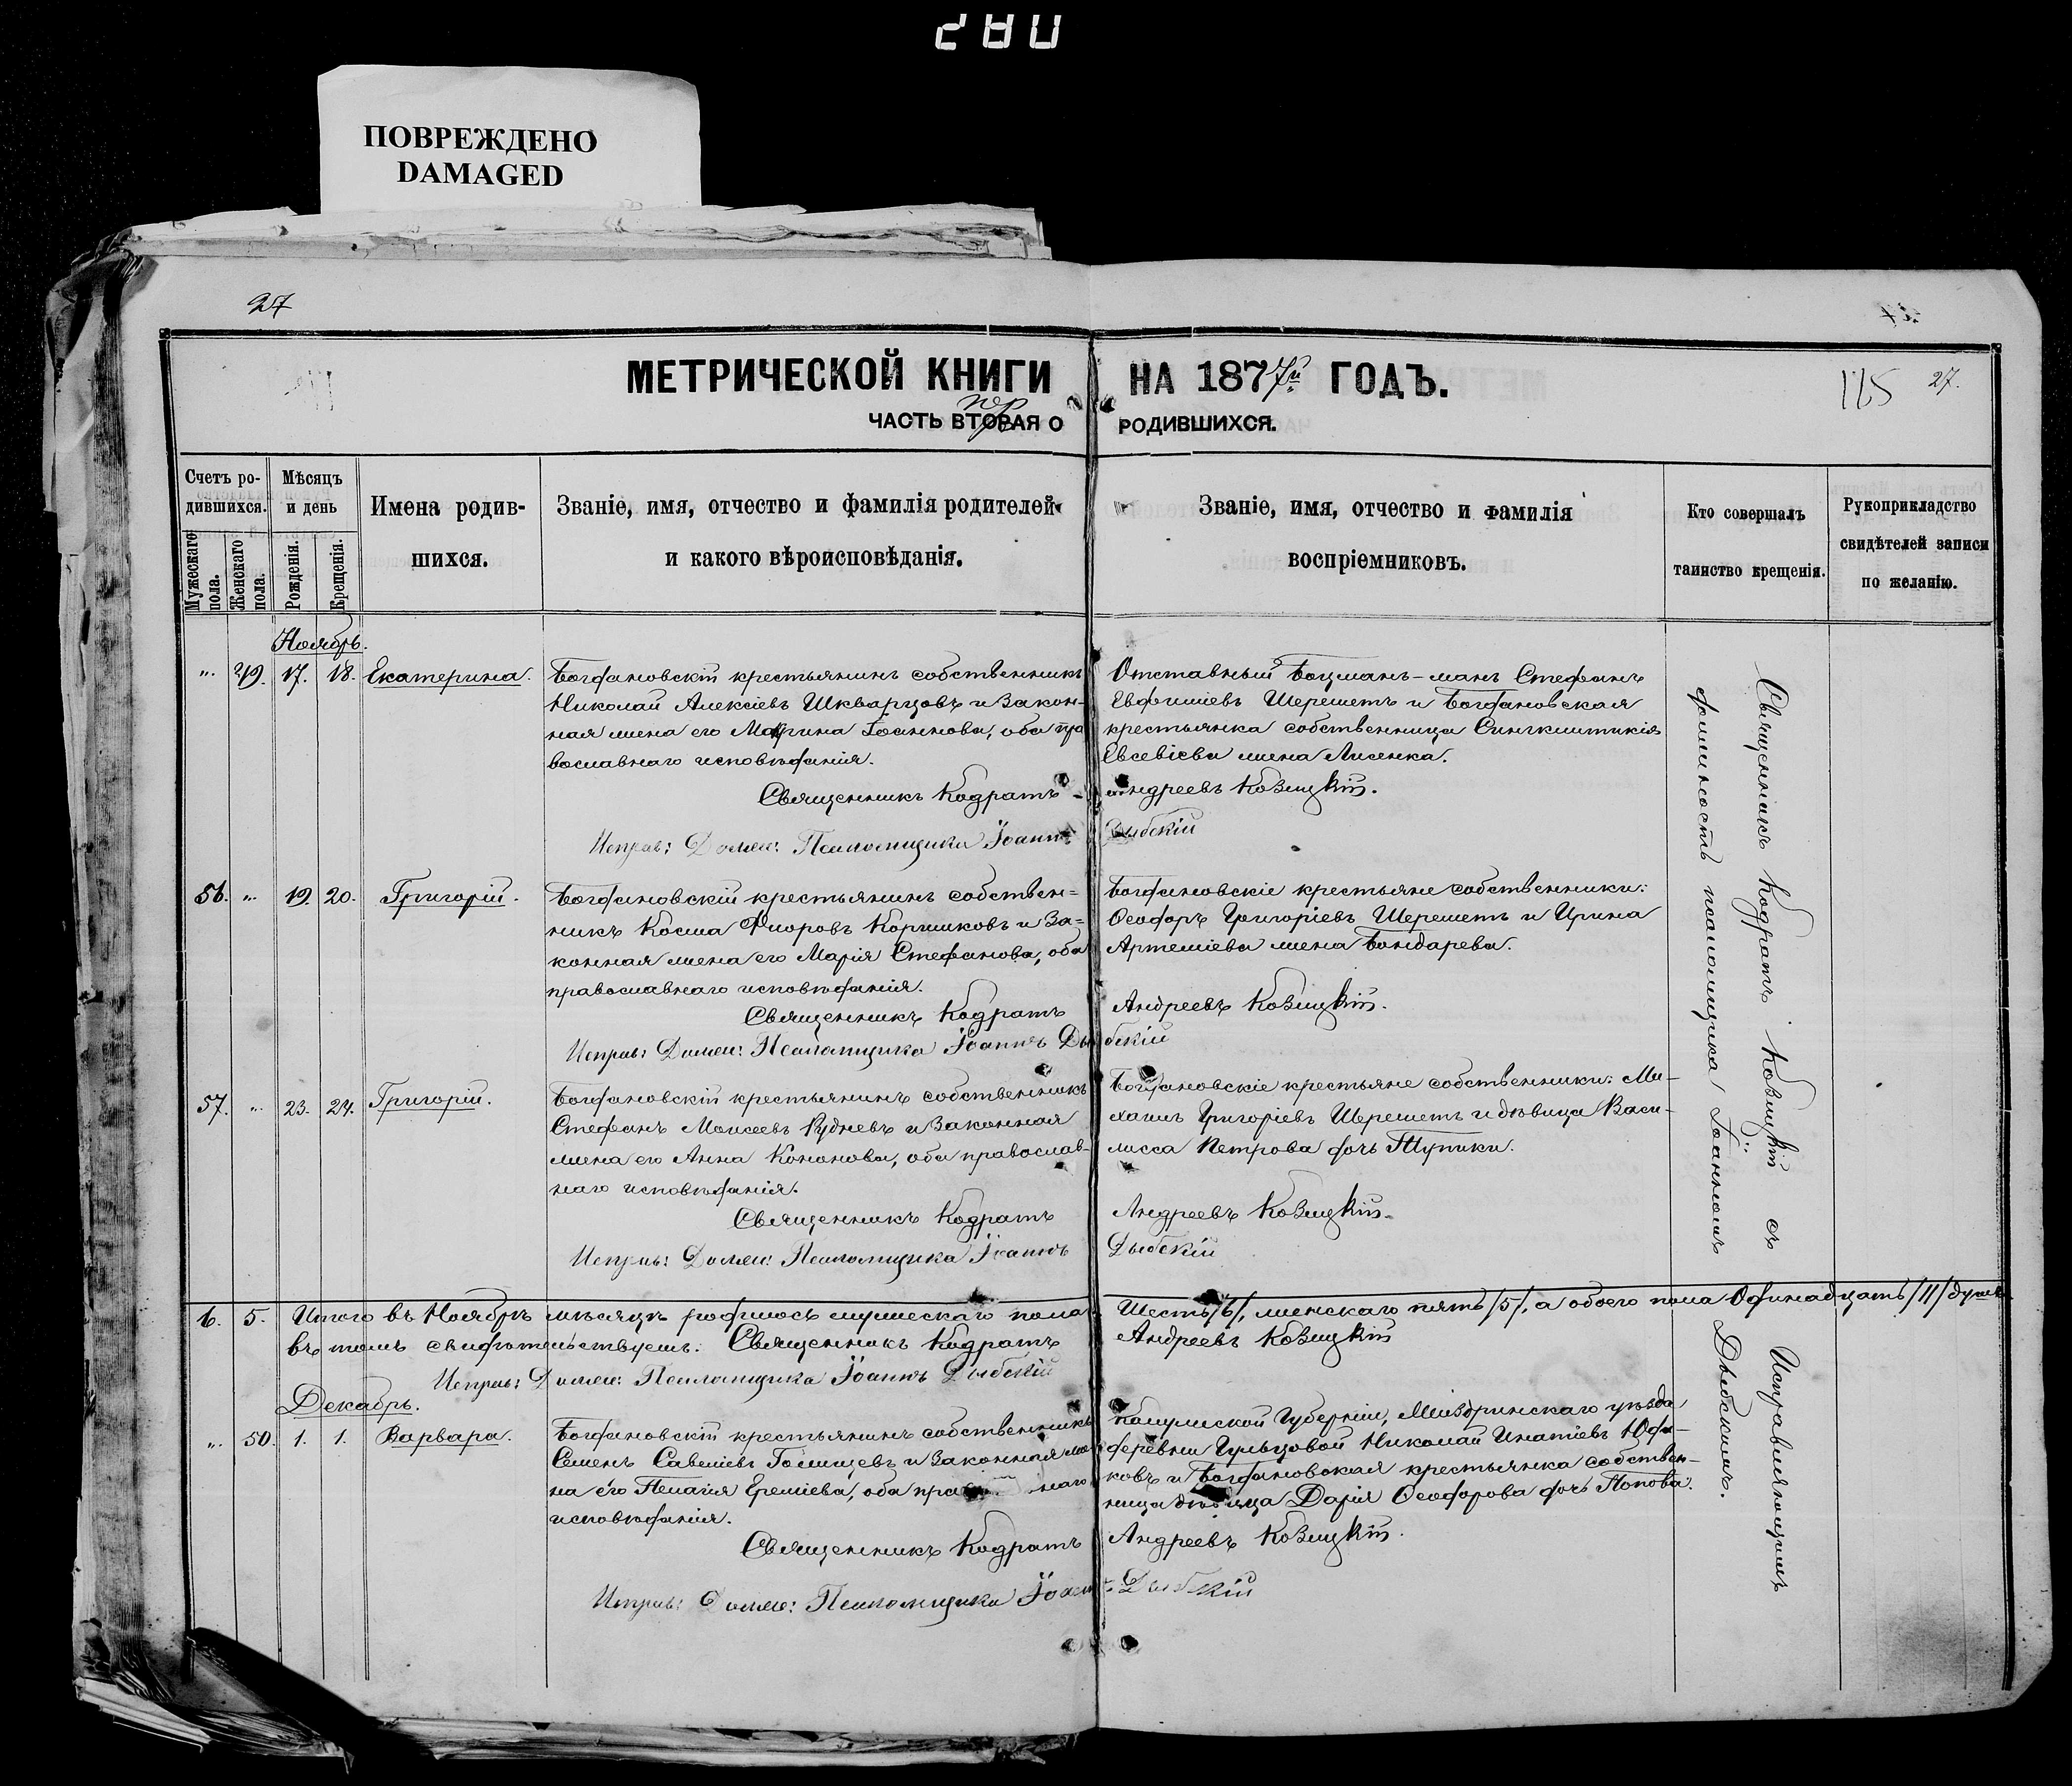 280
ПОВРЕЖДЕНО
DAMAGED
27
МЕТРИЧЕСКОЙ КНИГИ НА 1877й ГОДЪ.
115 27.
ЧАСТЬ ВТОРАЯ О РОДИВШИХСЯ.
пер
Счетъ ро-
дившихся.
Мужескаго пола.
Женскаго пола.
Мѣсяцъ
и день
Рожденія.
Крещенія.
Имена родив-
шихся.
Званіе, имя, отчество и фамилія родителей
и какого вѣроисповѣданія.
Званіе, имя, отчество и фамилія
воспріемниковъ.
Кто совершалъ
таинство крещенія.
Рукоприкладство
свидѣтелей записи
по желанію.
Ноябрь.
" 49. 17. 18. Екатерина.
Богдановскій крестьянинъ собственникъ
Николай Алексіевъ Шкварцовъ и закон-
ная жена его Марина Іоаннова, оба пра
вославнаго исповѣданія.
Отставный Боцманъ-манъ Стефанъ
Евфиміевъ Шереметъ и Богдановская
крестьянка собственница
Евсевіева жена Лисенка.
Священникъ Кодратъ Андреевъ Козицкій.
Исправ: Должн: Псаломщика Іоаннъ Дыбскій
56. " 19. 20. Григорій.
Богдановскій крестьянинъ собствен=
никъ Косма Коршиковъ и за=
конная жена его Марія Стефанова, оба
православнаго исповѣданія.
Богдановскіе крестьяне собственники:
Ѳеодоръ Григоріевъ Шереметъ и Ирина
Артеміева жена Бондарева.
Священникъ Кодратъ Андреевъ Козицкій.
Исправ: Должн: Псаломщика Іоаннъ Дыбскій
57. " 23. 24. Григорій.
Богдановскій крестьянинъ собственникъ
Стефанъ Моисеевъ Рудневъ и законная
жена его Анна Кононова, оба православ-
наго исповѣданія.
Богдановскіе крестьяне собственники: Ми-
хаилъ Григоріевъ Шереметъ и дѣвица Васи-
лисса Петрова дочь Тупики.
Священникъ Кодратъ Андреевъ Козицкій.
Исправ: Должн: Псаломщика Іоаннъ Дыбскій
6. 5. Итого въ Ноябрѣ мѣсяцѣ родилось мужескаго пола Шесть /6/, женскаго пять /5/, а обоего пола Одинадцать /11/ душъ
въ томъ свидѣтельствуемъ: Священникъ Кодратъ Андреевъ Козицкій
Исправ: Должн: Псаломщика Іоаннъ Дыбскій
Декабрь.
" 50. 1. 1. Варвара.
Богдановскій крестьянинъ собственникъ
Семенъ Савеліевъ Голищевъ и законная же
на его Пелагія Ереміева, оба прав наго
исповѣданія.
Губерніи, уѣзда
деревни Николай Игнатіевъ Юда-
ковъ и Богдановская крестьянка собствен-
ница дѣвица Дарія Ѳеодорова дочь Попова.
Священникъ Кодратъ Андреевъ Козицкій.
Исправ: Должн: Псаломщика Іоаннъ Дыбскій
Священникъ Кодратъ Козицкій съ Исправляющимъ
должность псаломщика Іоанномъ Дыбскимъ.